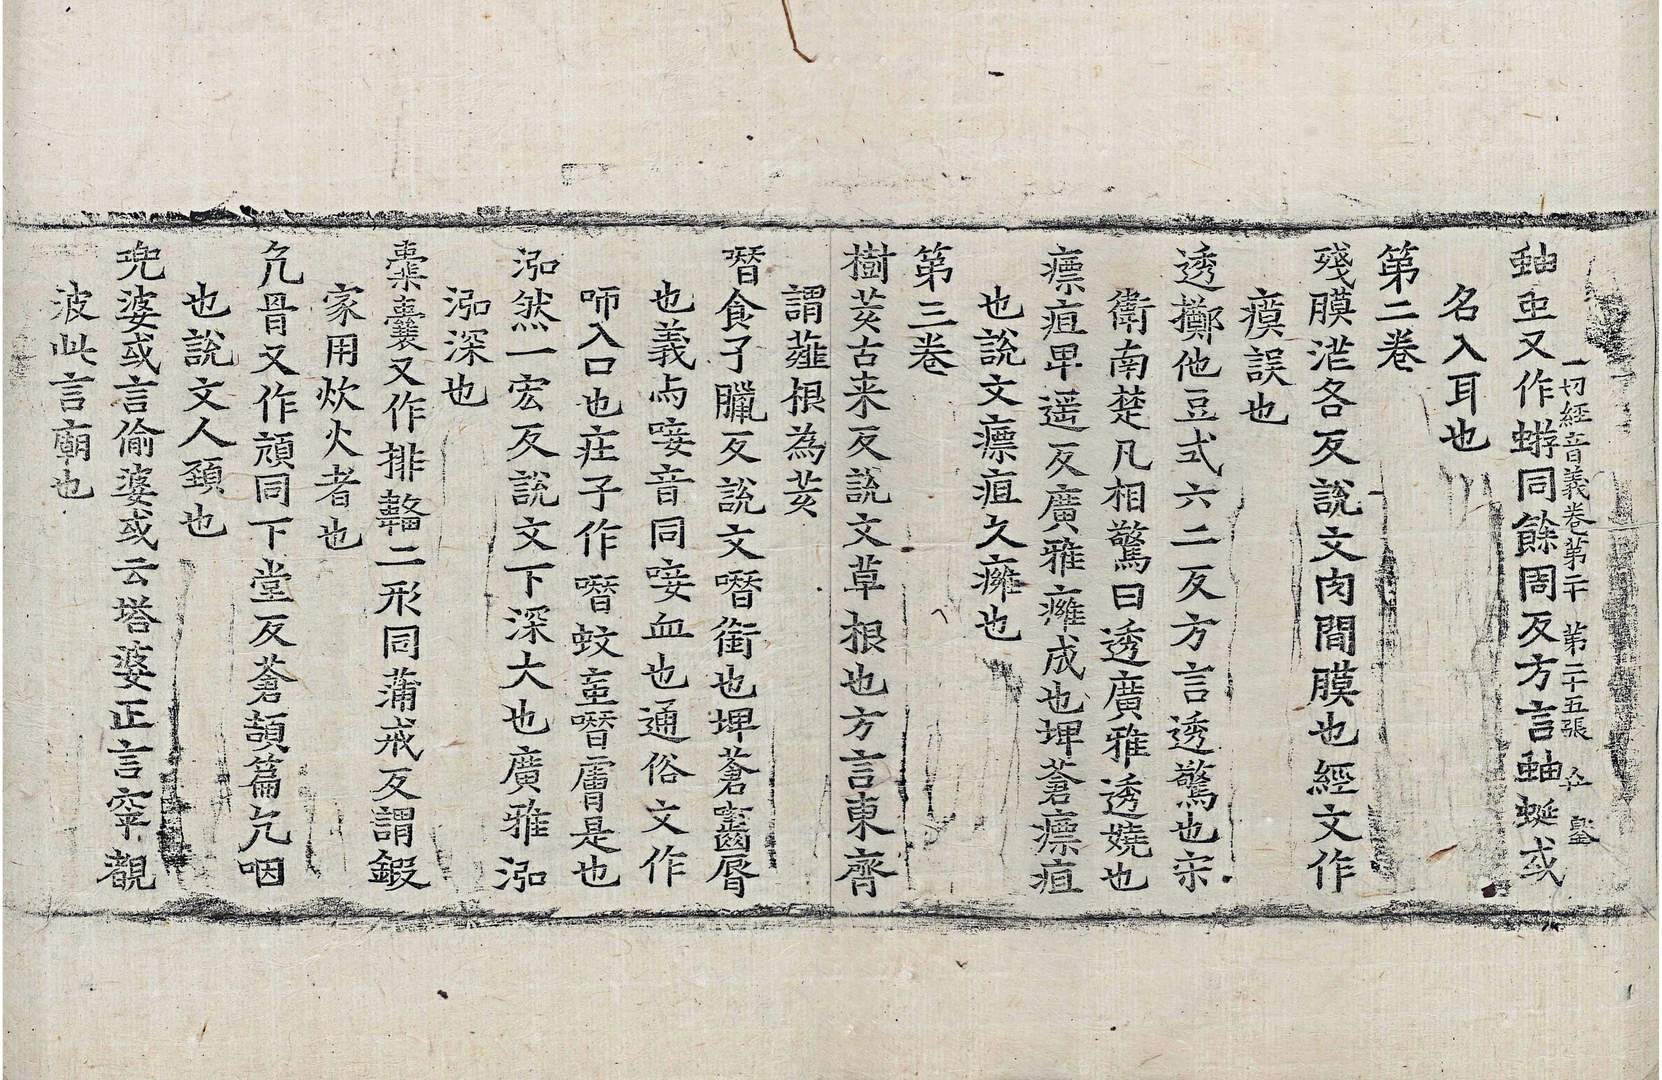 一切經音義卷第二十 第二十五張
蚰𧉮又作蝣同餘周反方言蚰蜒或
名入耳也
第二卷
殘膜茫各反說文肉間膜也經文作
瘼誤也
透擲他豆式六二反方言透驚也宋
衛南楚凡相驚曰透廣雅透嬈也
瘭疽卑遥反廣雅癰成也埤蒼瘭疽
也說文瘭疽久癰也
第三卷
樹荄古来反說文草根也方言東齊
謂䪥根為荄
噆食子臘反說文噆銜也埤蒼齧脣
也義與唼音同唼血也通俗文作
咂入口也庄子作噆蚊䖟噆膚是也
泓然一宏反說文下深大也廣雅泓
泓深也
橐囊又作排二形同蒲戒反謂鍛
家用炊火者也
亢骨又作頏同下堂反蒼頡篇亢咽
也說文人頸也
兜婆或言偷婆或云塔婆正言窣覩
波此言廟也